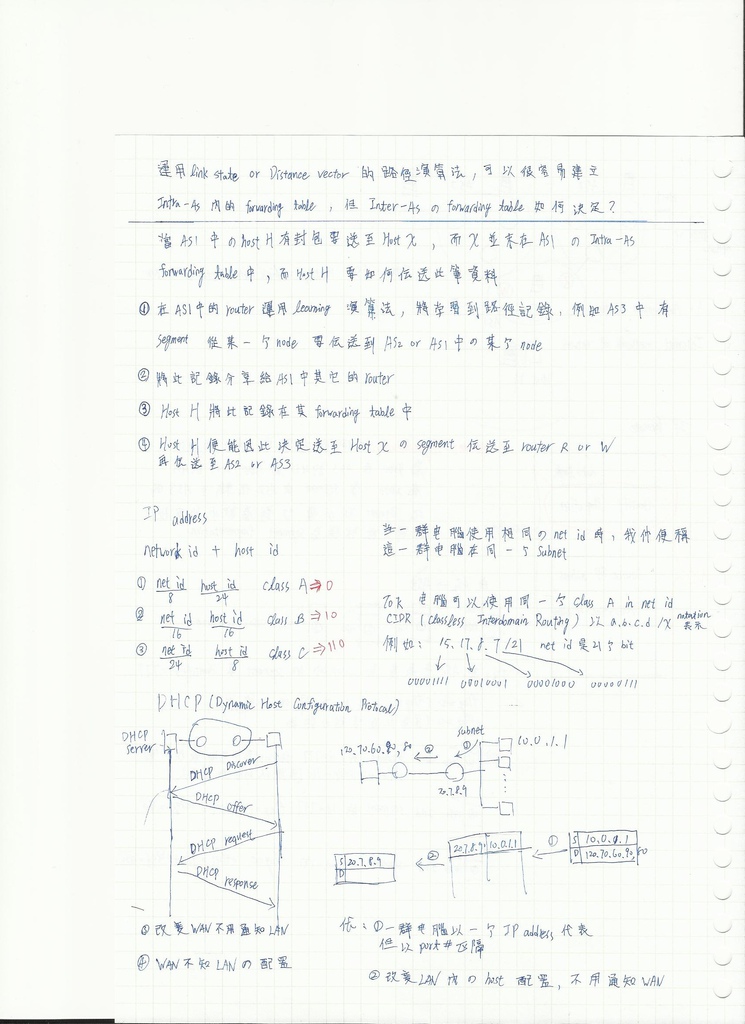 運用 link state or Distance vector 的 路徑演算法, 可以很容易建立
Intra-As 內的 forwarding table, 但 Inter-As の forwarding table 如何決定?
當 AS1 中の host H 有封包要送至 Host X, 而 X 並未在 AS1 の Intra-AS
forwarding table 中, 而 Host H 要如何伝送此筆資料
① 在 AS1 中的 router 運用 learning 演算法, 將学習到路徑記錄, 例如 AS3 中 有
segment 從某一个 node 要伝送到 AS2 or AS1 中の某个 node
② 將此記錄分享給 AS1 中其它的 router
③ Host H 將此記錄在其 forwarding table 中
④ Host H 便能因此決定送至 Host X の segment 伝送至 router R or W
再伝送至 AS2 or AS3
IP address
network id + host id
① net id host id class A ⇒ 0
8 24
② net id host id class B ⇒ 10
16 16
③ net id host id class C ⇒ 110
24 8
當一群电腦使用相同の net id 時, 我们便稱
這一群电腦在同一个 subnet
电腦可以使用同一个 class A in net id
CIDR (Classless Interdomain Routing) 以 a.b.c.d /x notation 表示
例如: 15.17.8.7/21 net id 是 21 个 bit
00001111 00010001 00001000 00000111
DHCP (Dynamic Host Configuration Protocal)
DHCP server
DHCP Discover
DHCP offer
DHCP request
DHCP response
subnet
120.70.60.90,80 ② ① 10.0.1.1
20.7.8.9
S 20.7.8.9
D
②
20.7.8.9 10.0.1.1
①
S 10.0.0.1
D 120.70.60.90, 80
③ 改変 WAN 不用通知 LAN
④ WAN 不知 LAN の 配置
优: ① 一群电腦以一个 IP address 代表
但以 port# 区隔
② 改変 LAN 内の host 配置, 不用通知 WAN